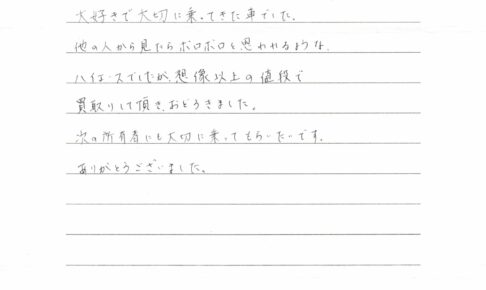 大好きで大切に乗ってきた車でした。
他の人から見たらボロボロと思われるような、
ハイエースでしたが、想像以上の値段で
買取りして頂き、おどろきました。
次の所有者にも大切に乗ってもらいたいです。
ありがとうございました。